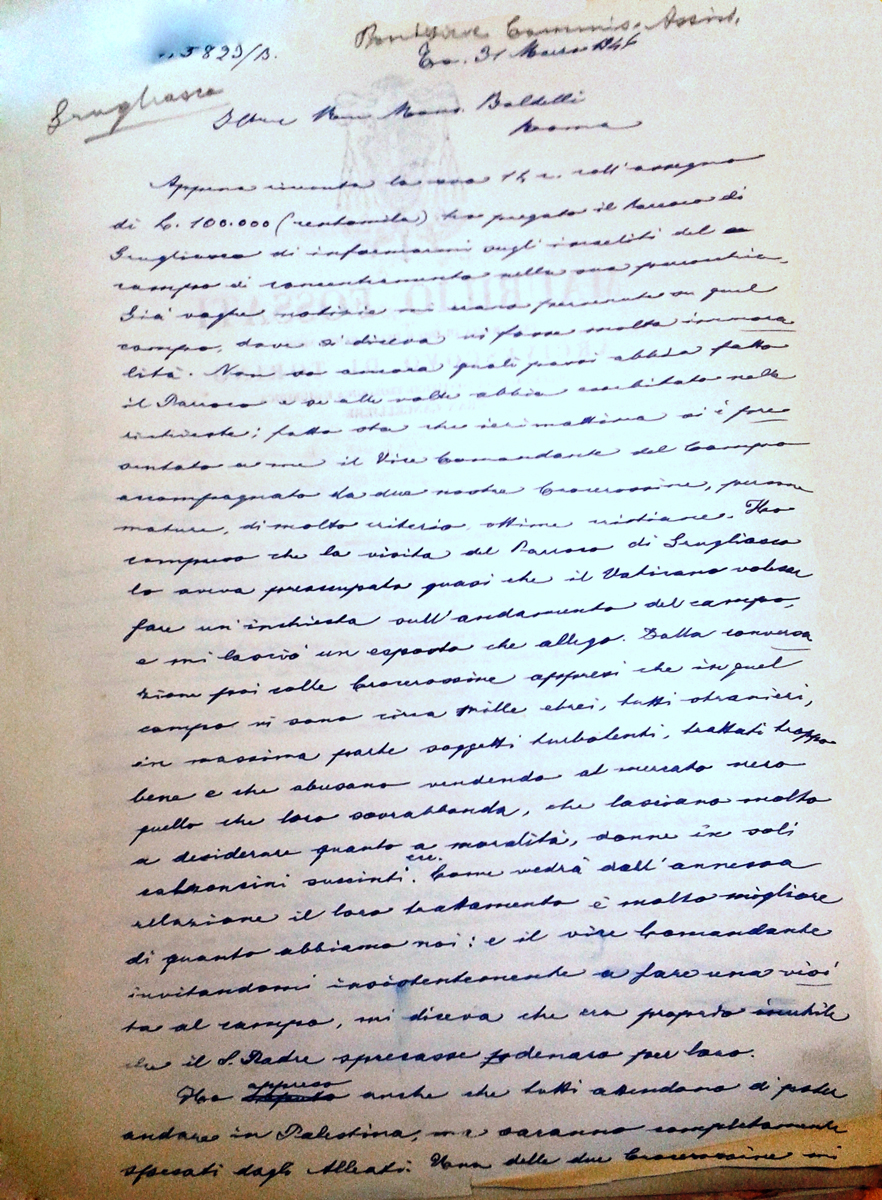 n. 5823/B.
Pontificie Commiss. Assist.
To. 31 Marzo 1946
Grugliasco
Ill.mo Rev. Mons. Baldelli
Roma
Appena ricevuta la sua 14 c. coll'assegno
di L. 100.000 (centomila) ho pregato il Parroco di
Grugliasco di informarmi sugli israeliti del
campo di concentramento nella sua parrocchia.
Già vaghe notizie mi erano pervenute su quel
campo, dove si diceva vi fosse molta immora
lità. Non so ancora quali passi abbia fatto
il Parroco e se alle volte abbia esorbitato nelle
richieste; fatto sta che ieri mattina si è pre
sentato a me il Vice Comandante del Campo
accompagnato da due nostre Crocerossine, persone
mature, di molto criterio, ottime cristiane. Ho
compreso che la visita del Parroco di Grugliasco
lo aveva preoccupato quasi che il Vaticano volesse
fare un'inchiesta sull'andamento del campo,
e mi lasciò un esposto che allego. Dalla conversa
zione poi colle Crocerossine appresi che in quel
campo vi sono circa mille ebrei, tutti stranieri,
in massima parte soggetti turbolenti, trattati troppo
bene e che abusano vendendo al mercato nero
quello che loro sovrabbonda, che lasciano molto
a desiderare quanto a moralità, donne in soli
calzoncini succinti ecc. Come vedrà dall'annessa
relazione il loro trattamento è molto migliore
di quanto abbiamo noi: e il vice Comandante
invitandomi insistentemente a fare una visi
ta al campo, mi diceva che era proprio inutile
che il S. Padre sprecasse denaro per loro.
Ho appreso anche che tutti attendono di poter
andare in Palestina, ma saranno completamente
sfossati dagli Alleati. Una delle due Crocerossine mi
MAURILIO FOSSATI
ARCIVESCOVO DI TORINO